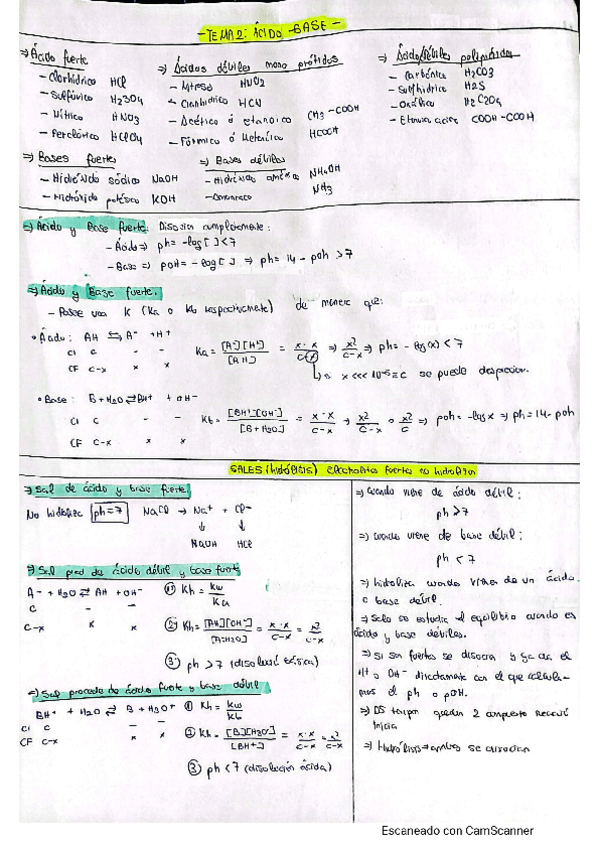 - TEMA 2: ÁCIDO - BASE -
⇒ Ácido fuerte
- Clorhídrico HCl
- Sulfúrico H2SO4
- Nítrico HNO3
- Perclórico HClO4
⇒ Ácidos débiles mono próticos
- Nitroso HNO2
- Cianhídrico HCN
- Acético ó etanoico CH3-COOH
- Fórmico ó Metanoico HCOOH
⇒ Ácidos débiles polipróticos
- Carbónico H2CO3
- Sulfhídrico H2S
- Oxálico H2C2O4
COOH-COOH
⇒ Bases fuertes
- Hidróxido sódico NaOH
- Hidróxido potásico KOH
⇒ Bases débiles
- Hidróxido NH4OH
- Amoniaco NH3
⇒ Ácido y Base fuerte: Disocian completamente:
- Ácido ⇒ ph = -log[ ] < 7
- Base ⇒ poH = -log[ ] ⇒ ph = 14 - poh > 7
⇒ Ácido y Base fuerte.
- Posee una K (Ka o Kb respectivamente) de manera que:
• Ácido: AH ⇆ A- + H+
CI C - -
CF C-x x x
Ka = [A-][H+] / [AH] = x·x / C-x ⇒ x2 / C-x ⇒ ph = -log(x) < 7
si x <<< 10-5 ≡ C se puede despreciar.
• Base: B + H2O ⇌ BH+ + OH-
CI C - -
CF C-x x x
Kb = [BH+][OH-] / [B+H2O] = x·x / C-x → x2 / C-x o x2 / C ⇒ poh = -log x ⇒ ph = 14 - poh
SALES (hidrólisis) electrolitos fuertes no hidrolizan
⇒ Sal de ácido y base fuerte
No hidroliza ph=7 NaCl → Na+ + Cl-
NaOH HCl
⇒ Sal proced de ácido débil y base fuerte
A- + H2O ⇌ AH + OH- ① Kh = Kw / Ka
C - -
C-x x x ② Kh = [AH][OH-] / [A+H2O] = x·x / C-x = x2 / C-x
③ ph > 7 (disolución básica)
⇒ Sal procede de ácido fuerte y base débil
BH+ + H2O ⇌ B + H3O+ ① Kh = Kw / Kb
CI C - -
CF C-x x x ② Kh = [B][H3O+] / [BH+] = x·x / C-x = x2 / C-x
③ ph < 7 (disolución ácida)
⇒ cuando viene de ácido débil:
ph > 7
⇒ cuando viene de base débil:
ph < 7
⇒ hidroliza cuando viene de un ácido
o base débil.
⇒ Solo se estudia el equilibrio cuando es
ácido y base débiles.
⇒ Si son fuertes se disocian y ya da el
H+ o OH- directamente con el que calcula-
mos el ph o pOH.
⇒ Hidrólisis = ambos se disocian
Escaneado con CamScanner